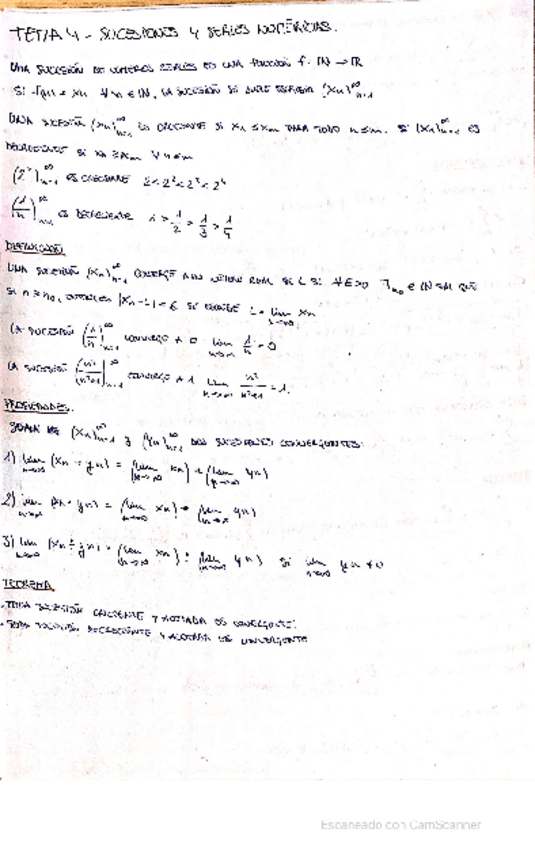 TEMA 4 - SUCESIONES Y SERIES NUMÉRICAS.
UNA SUCESIÓN DE NÚMEROS REALES ES UNA FUNCIÓN f: ℕ → ℝ
SI f(n) = xn ∀n ∈ ℕ, LA SUCESIÓN SE SUELE ESCRIBIR (xn)∞n=1
UNA SUCESIÓN (xn)∞n=1 ES CRECIENTE SI xn ≤ xm PARA TODO n ≤ m. SI (xn)∞n=1 ES
DECRECIENTE SI xn ≥ xm ∀ n ≤ m
(2ⁿ)∞n=1 ES CRECIENTE 2 < 2² < 2³ < 2⁴
(1/n)∞n=1 ES DECRECIENTE 1 > 1/2 > 1/3 > 1/4
DEFINICIÓN.
UNA SUCESIÓN (xn)∞n=1 CONVERGE A UN NÚMERO REAL L SI ∀ε>0 ∃ n0 ∈ ℕ TAL QUE
SI n ≥ n0, ENTONCES |xn - L| < ε SE ESCRIBE L = lim n→∞ xn
LA SUCESIÓN (1/n)∞n=1 CONVERGE A 0 lim n→∞ 1/n = 0
LA SUCESIÓN (n²/n²+1)∞n=1 CONVERGE A 1 lim n→∞ n²/n²+1 = 1.
PROPIEDADES.
SEAN (xn)∞n=1 y (yn)∞n=1 DOS SUCESIONES CONVERGENTES:
1) lim n→∞ (xn + yn) = (lim n→∞ xn) + (lim n→∞ yn)
2) lim n→∞ (xn · yn) = (lim n→∞ xn) · (lim n→∞ yn)
3) lim n→∞ (xn ÷ yn) = (lim n→∞ xn) : (lim n→∞ yn) si lim n→∞ yn ≠ 0
TEOREMA
· TODA SUCESIÓN CRECIENTE Y ACOTADA ES CONVERGENTE.
· TODA SUCESIÓN DECRECIENTE Y ACOTADA ES CONVERGENTE
Escaneado con CamScanner